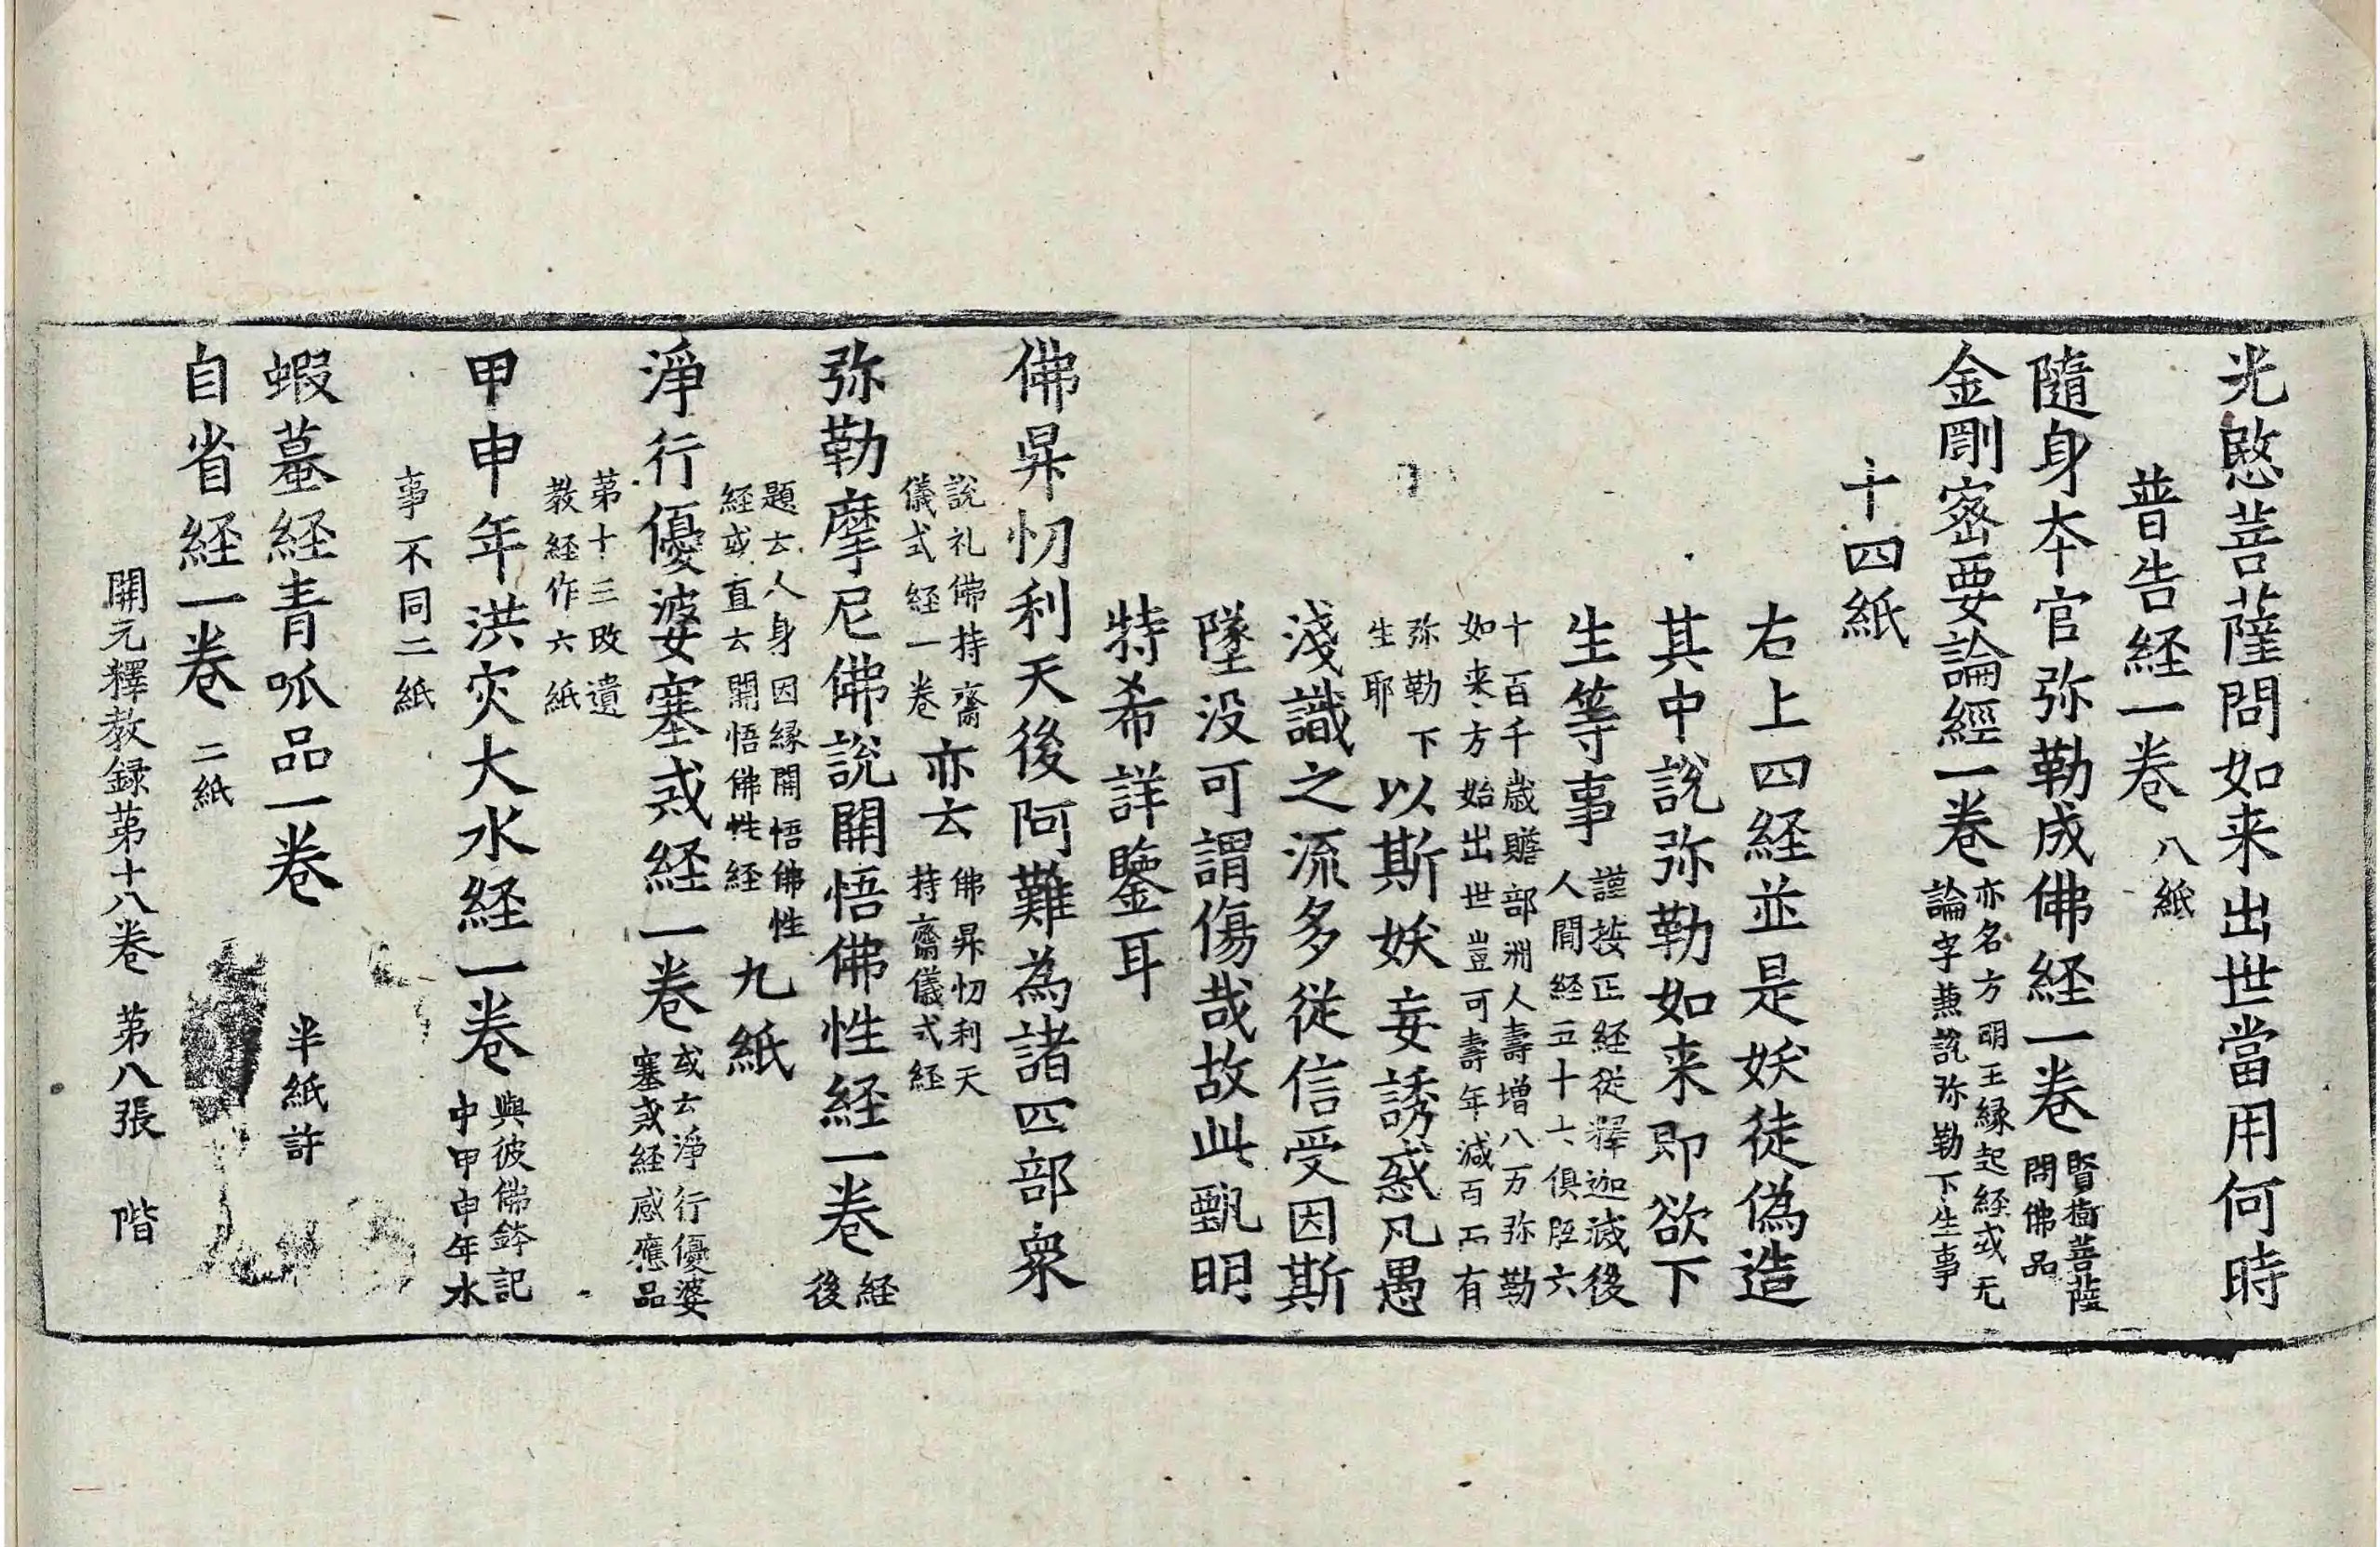 光愍菩薩問如来出世當用何時
普告経一巻 八紙
隨身本官弥勒成佛経一巻 賢樹菩薩問佛品
金剛宻要論經一巻 亦名方明王縁起経或无論字兼説弥勒下生事
十四紙
右上四経並是妖徒偽造
其中說弥勒如来即欲下
生等事 謹按正経従釋迦滅後人間経五十六俱胝六
十百千歳贍部洲人壽增八万弥勒如来方始出世豈可壽年減百而有
弥勒下生耶 以斯妖妄誘惑凡愚
淺識之流多從信受因斯
墜没可謂傷哉故此甄明
特希詳鑒耳
佛昇忉利天後阿難為諸四部衆
說礼佛持齋儀式経一巻 亦云 佛昇忉利天持齋儀式経
弥勒摩尼佛說開悟佛性経一巻 経後
題云人身因縁開悟佛性経或直云開悟佛性経 九紙
淨行優婆塞戒経一巻 或云淨行優婆塞戒経感應品
第十三改遺教経作六紙
甲申年洪灾大水経一巻 與彼佛鉢記中甲申年水
事不同二紙
蝦蟇経青呱品一巻 半紙許
自省経一巻 二紙
開元釋教録第十八巻 第八張 階